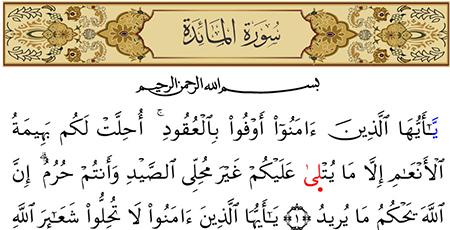 سُورَةُ المَائدَةِ
بسم الله الرحمن الرحيم
يَٰٓأَيُّهَا ٱلَّذِينَ ءَامَنُوٓا۟ أَوْفُوا۟ بِٱلْعُقُودِ ۚ أُحِلَّتْ لَكُم بَهِيمَةُ
ٱلْأَنْعَٰمِ إِلَّا مَا يُتْلَىٰ عَلَيْكُمْ غَيْرَ مُحِلِّى ٱلصَّيْدِ وَأَنتُمْ حُرُمٌ ۗ إِنَّ
ٱللَّهَ يَحْكُمُ مَا يُرِيدُ ﴿١﴾ يَٰٓأَيُّهَا ٱلَّذِينَ ءَامَنُوا۟ لَا تُحِلُّوا۟ شَعَٰٓئِرَ ٱللَّهِ